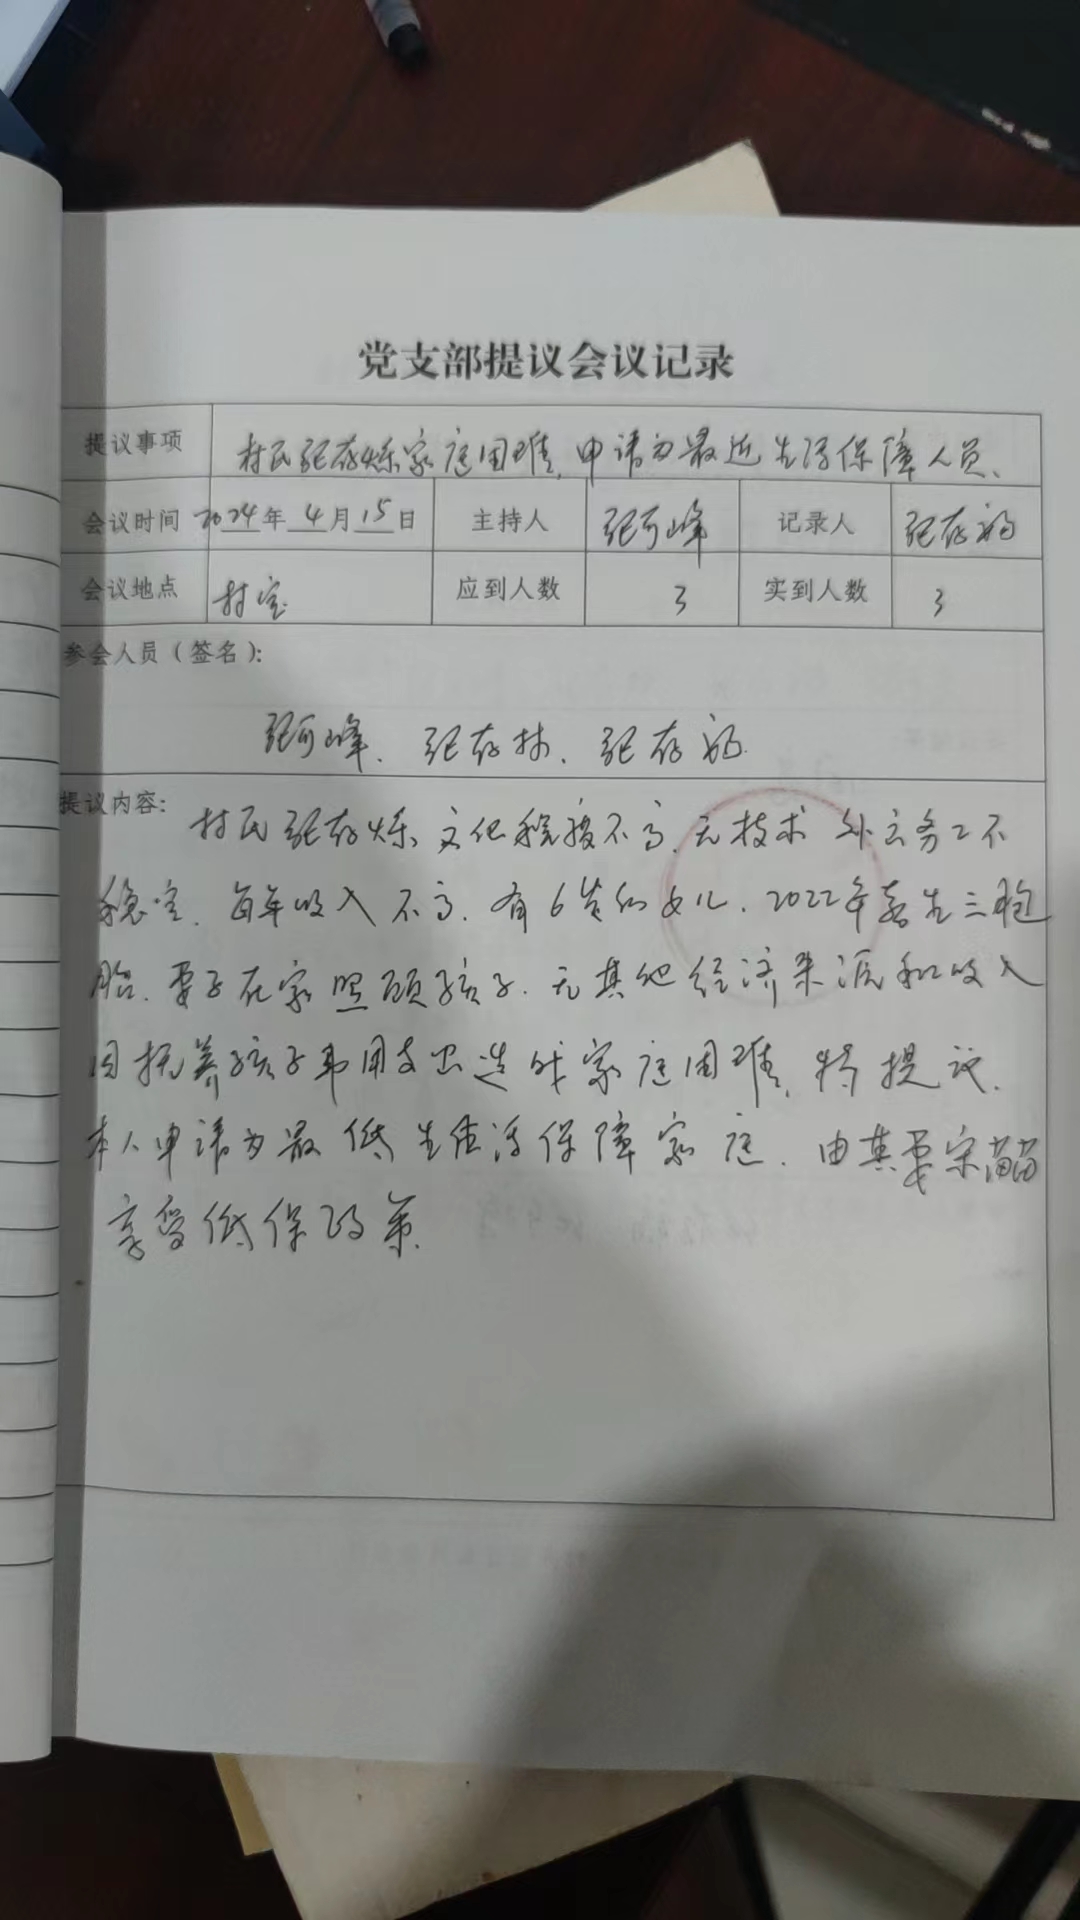 党支部提议会议记录
提议事项 村民张存烁家庭困难,申请为最近生活保障人员、
会议时间 2024年 4月 15日 主持人 张可峰 记录人 张存福
会议地点 村室 应到人数 3 实到人数 3
参会人员（签名）：
张可峰、张存林、张存福
提议内容：村民张存烁,文化程度不高,无技术 外出务工不
稳定、每年收入不高、有6岁的女儿、2022年喜生三胞
胎、妻子在家照顾孩子、无其他经济来源和收入
因抚养孩子费用支出造成家庭困难,特提议、
本人申请为最低生活保障家庭、由其妻宋苗苗
享受低保政策